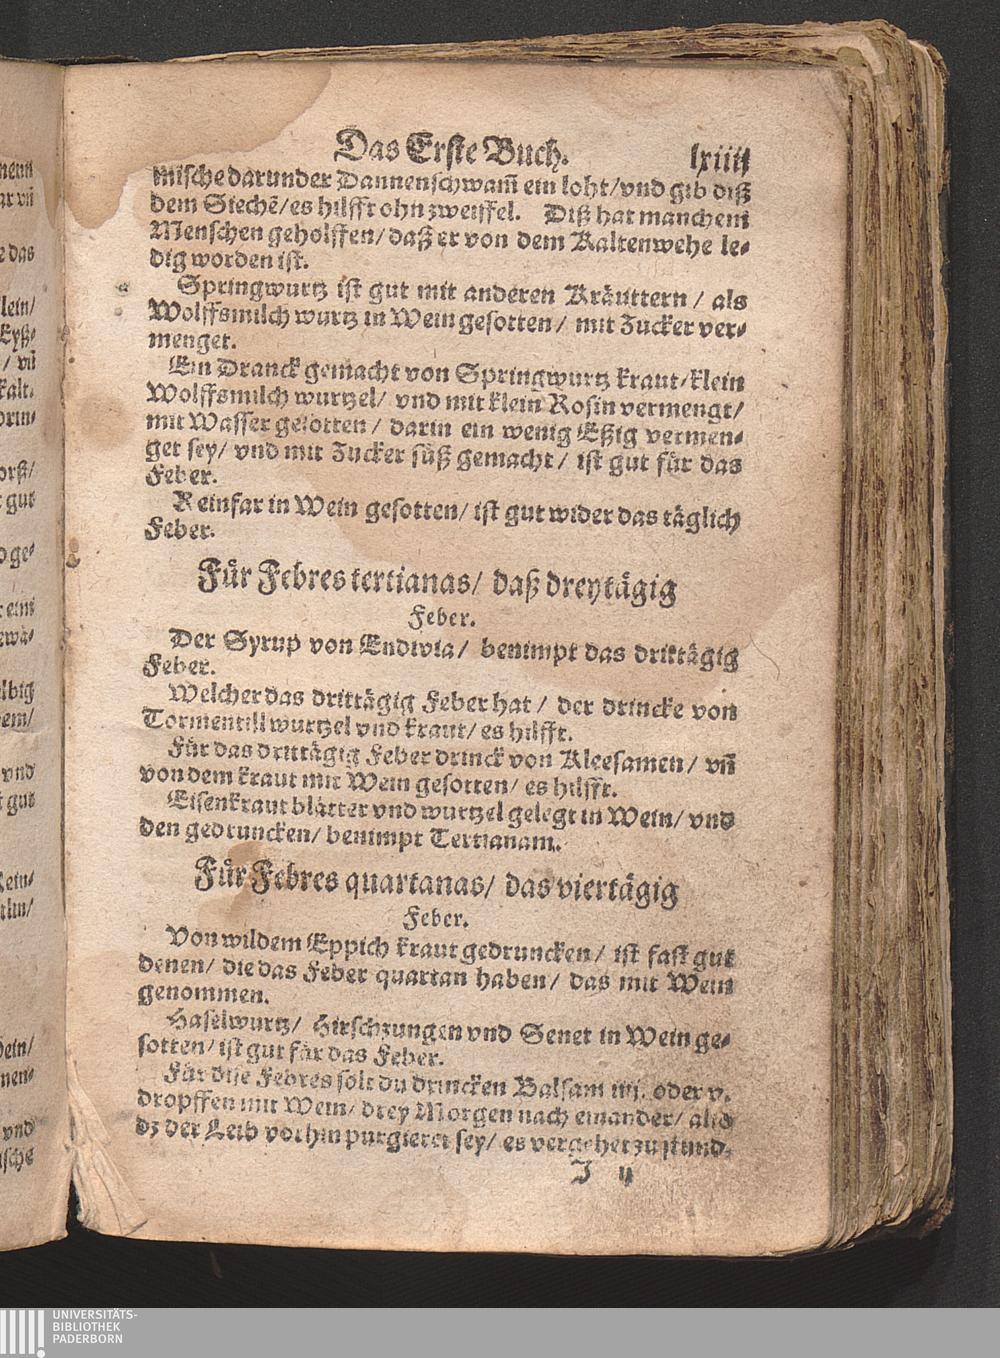 Das Erste Buch. lxiiij
mische darunder Dannenschwam̃ ein loht/ vnd gib diß
dem Siechẽ/ es hilfft ohn zweiffel. Diß hat manchem
Menschen geholffen/ daß er von dem Kaltenwehe le-
dig worden ist.
Springwurtz ist gut mit anderen Kräuttern / als
Wolffsmilch wurtz in Wein gesotten / mit Zucker ver-
menget.
Ein Dranck gemacht von Springwurtz kraut/ klein
Wolffsmilch wurtzel/ vnd mit klein Rosin vermengt/
mit Wasser gesotten / darin ein wenig Eßig vermen-
get sey/ vnd mit Zucker süß gemacht / ist gut für das
Feber.
Reinfar in Wein gesotten/ ist gut wider das täglich
Feber.
Für Febres tertianas/ daß dreytägig
Feber.
Der Syrup von Endivia/ benimpt das drittägig
Feber.
Welcher das drittägig Feber hat / der drincke von
Tormentill wurtzel vnd kraut/ es hilfft.
Für das drittägig Feber drinck von Kleesamen/ vñ
von dem kraut mit Wein gesotten/ es hilfft.
Eisenkraut blätter vnd wurtzel gelegt in Wein/ vnd
den gedruncken/ benimpt Tertianam.
Für Febres quartanas/ das viertägig
Feber.
Von wildem Eppich kraut gedruncken/ ist fast gut
denen/ die das Feber quartan haben/ das mit Wein
genommen.
Haselwurtz/ Hirschzungen vnd Senet in Wein ge-
sotten/ ist gut für das Feber.
Für dise Febres solt du drincken Balsam iiij. oder v.
dropffen mit Wein/ drey Morgen nach einander/ also
dz der Leib vorhin purgieret sey/ es vergehet zustund.
J ij
UNIVERSITÄTS-
BIBLIOTHEK
PADERBORN